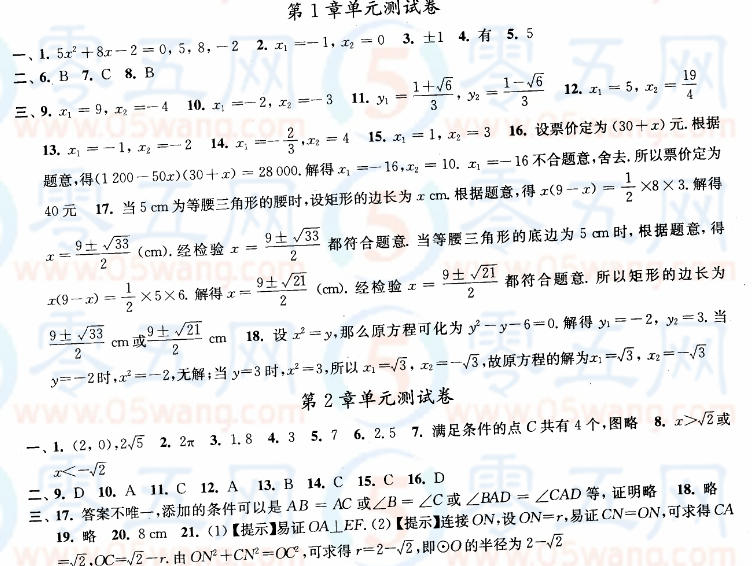 第1章单元测试卷
一、1. 5x²+8x-2=0, 5, 8, -2 2. x₁=-1, x₂=0 3. ±1 4. 有 5. 5
二、6. B 7. C 8. B
三、9. x₁=9, x₂=-4 10. x₁=-2, x₂=-3 11. y₁=(1+√6)/3, y₂=(1-√6)/3 12. x₁=5, x₂=19/4
13. x₁=-1, x₂=-2 14. x₁=-2/3, x₂=4 15. x₁=1, x₂=3 16. 设票价定为(30+x)元.根据
题意,得(1 200-50x)(30+x)=28 000.解得x₁=-16,x₂=10. x₁=-16不合题意,舍去.所以票价定为
40元 17. 当5 cm为等腰三角形的腰时,设矩形的边长为x cm.根据题意,得x(9-x)=1/2×8×3.解得
x=(9±√33)/2 (cm).经检验x=(9±√33)/2都符合题意.当等腰三角形的底边为5 cm时,根据题意,得
x(9-x)=1/2×5×6.解得x=(9±√21)/2 (cm).经检验x=(9±√21)/2都符合题意.所以矩形的边长为
(9±√33)/2 cm或(9±√21)/2 cm 18. 设x²=y,那么原方程可化为y²-y-6=0.解得y₁=-2, y₂=3.当
y=-2时,x²=-2,无解;当y=3时,x²=3,所以x₁=√3, x₂=-√3,故原方程的解为x₁=√3, x₂=-√3
第2章单元测试卷
一、1. (2,0),2√5 2. 2π 3. 1.8 4. 3 5. 7 6. 2.5 7. 满足条件的点C共有4个,图略 8. x>√2或
x<-√2
二、9. D 10. A 11. C 12. A 13. B 14. C 15. C 16. D
三、17. 答案不唯一,添加的条件可以是AB=AC或∠B=∠C或∠BAD=∠CAD等,证明略 18. 略
19. 略 20. 8 cm 21. (1)【提示】易证OA⊥EF. (2)【提示】连接ON,设ON=r,易证CN=ON,可求得CA
=√2,OC=√2-r.由ON²+CN²=OC²,可求得r=2-√2,即⊙O的半径为2-√2
零五网
www.05wang.com